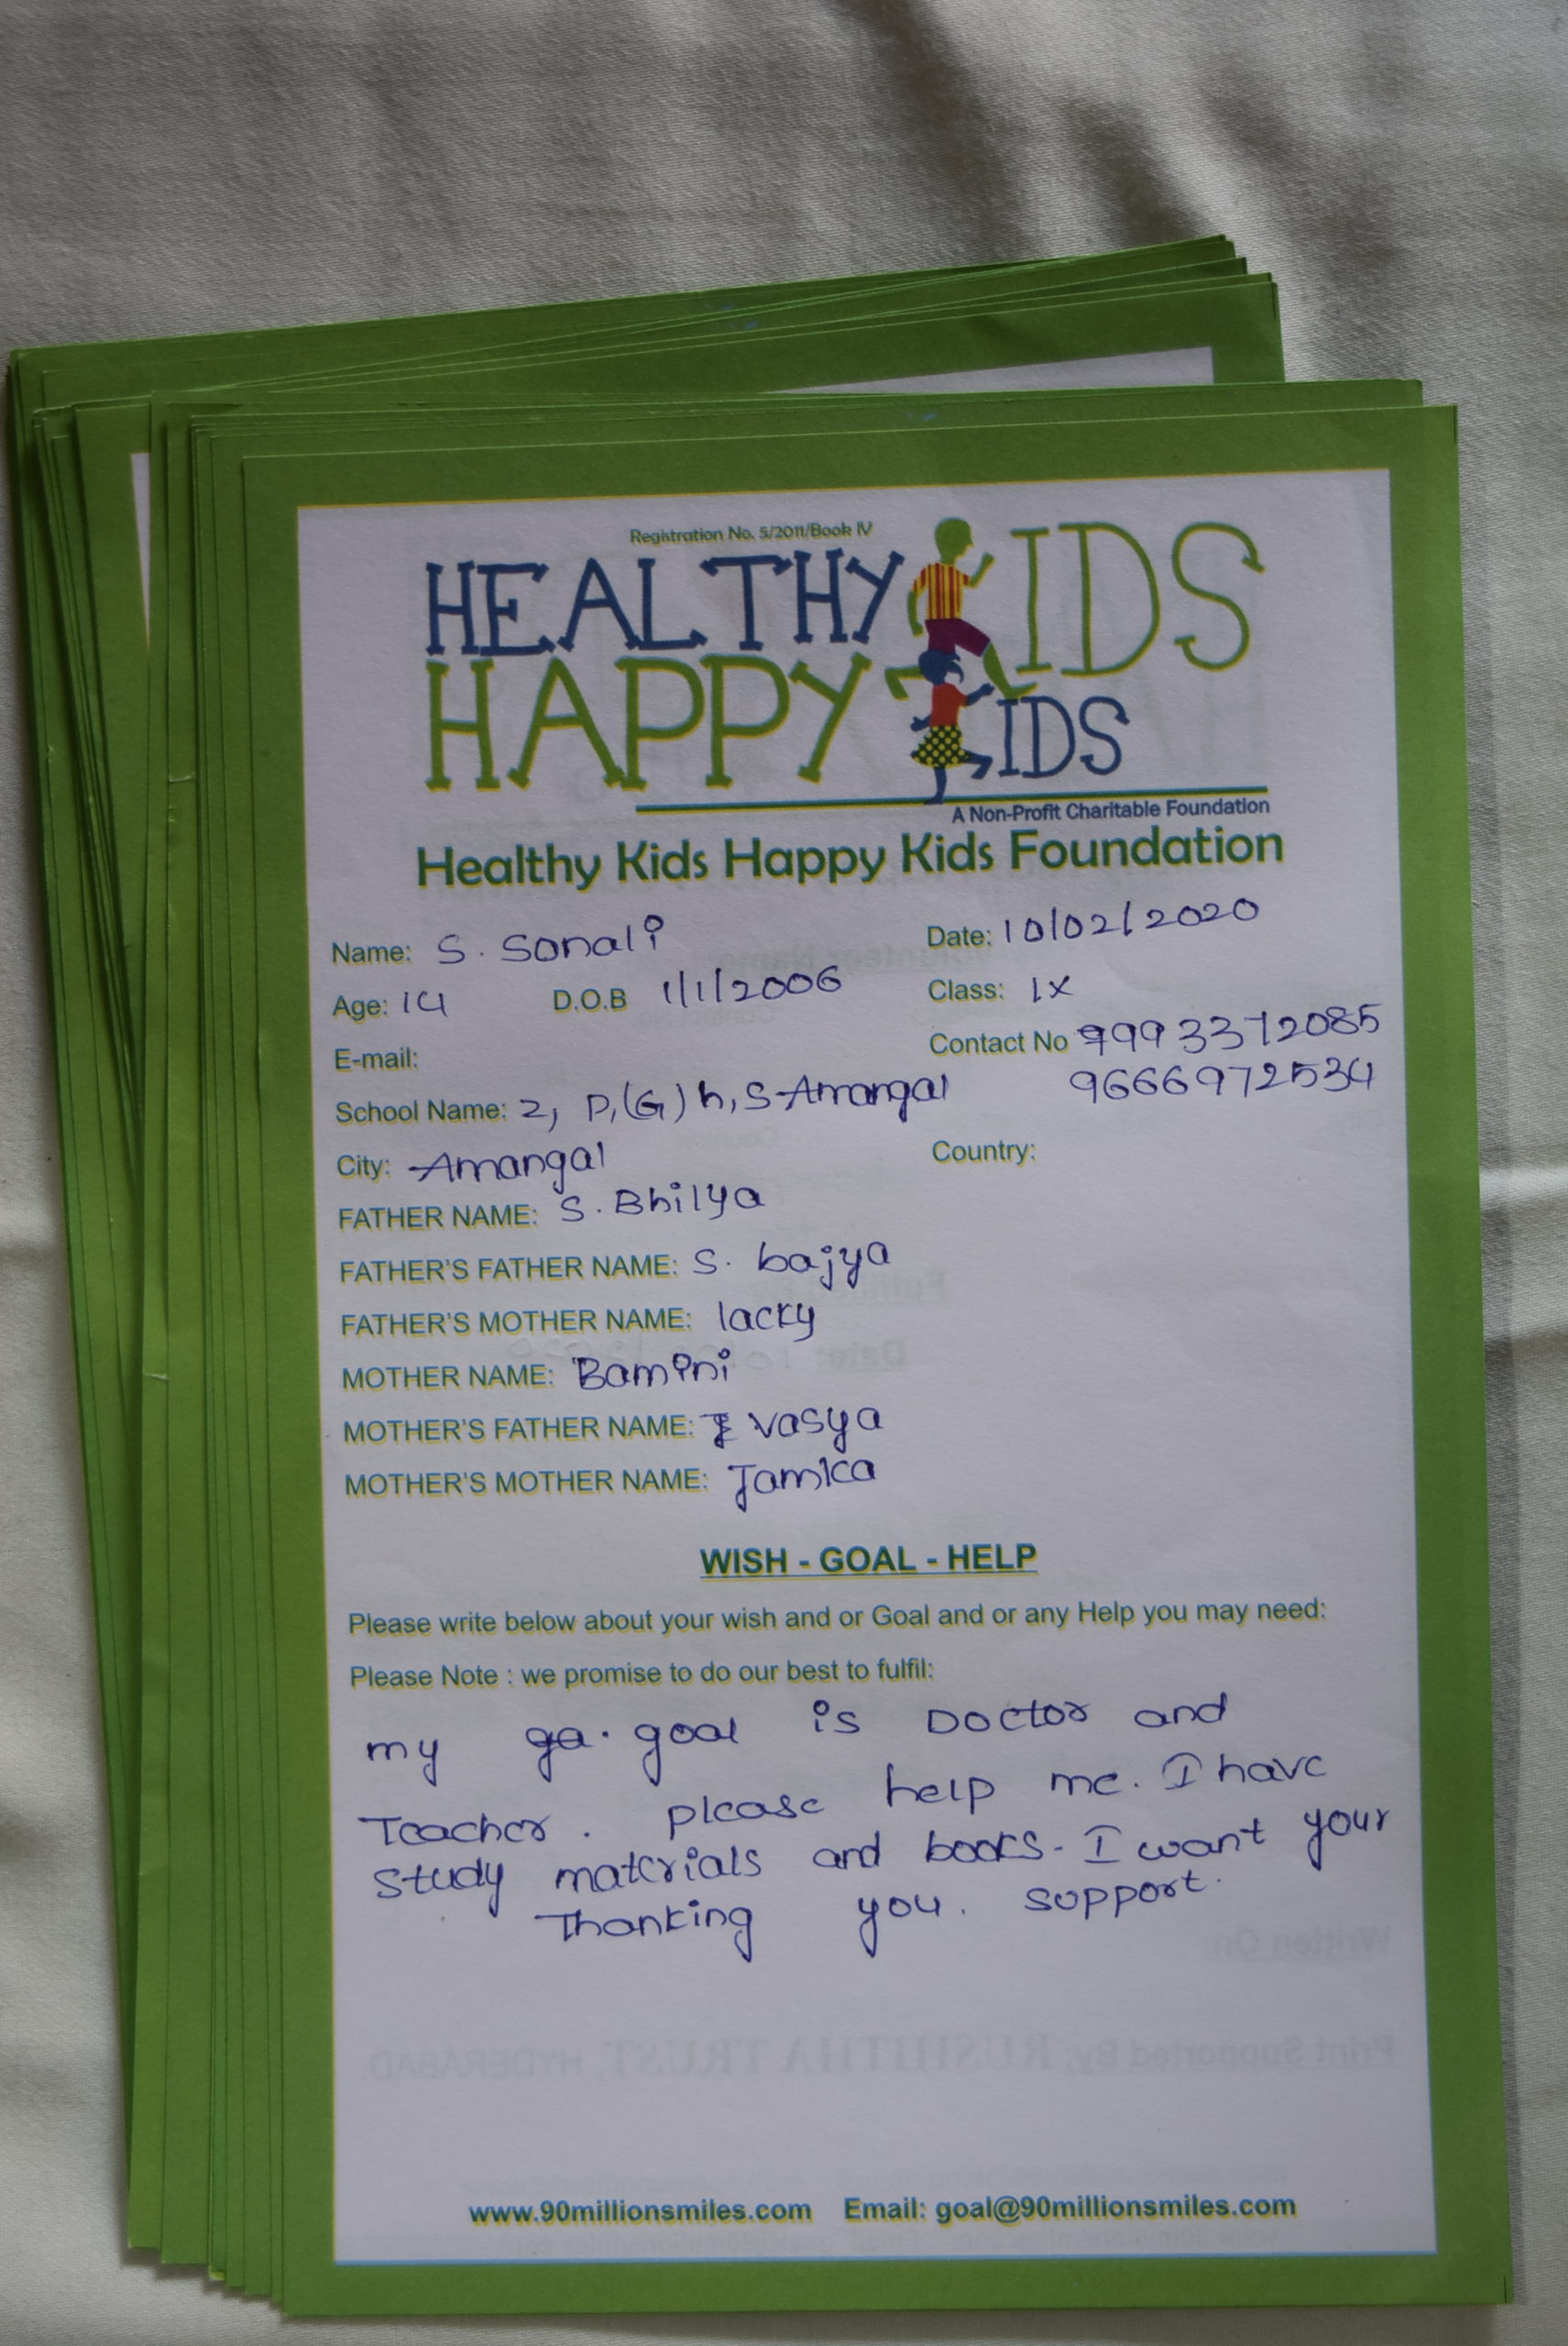 Registration No. 5/2011/Book IV
HEALTHY KIDS
HAPPY KIDS
A Non-Profit Charitable Foundation
Healthy Kids Happy Kids Foundation
Name: S. Sonali Date: 10/02/2020
Age: 14 D.O.B 1/1/2006 Class: IX
E-mail: Contact No 9993372085
9666972534
School Name: Z, P, (G) h, S-Amangal
City: Amangal Country:
FATHER NAME: S. Bhilya
FATHER'S FATHER NAME: S. bajya
FATHER'S MOTHER NAME: lacky
MOTHER NAME: Bamini
MOTHER'S FATHER NAME: vasya
MOTHER'S MOTHER NAME: Jamka
WISH - GOAL - HELP
Please write below about your wish and or Goal and or any Help you may need:
Please Note : we promise to do our best to fulfil:
my goal is Doctor and
Teacher. please help me. I have
study materials and books. I want your
Thanking you. support.
www.90millionsmiles.com Email: goal@90millionsmiles.com